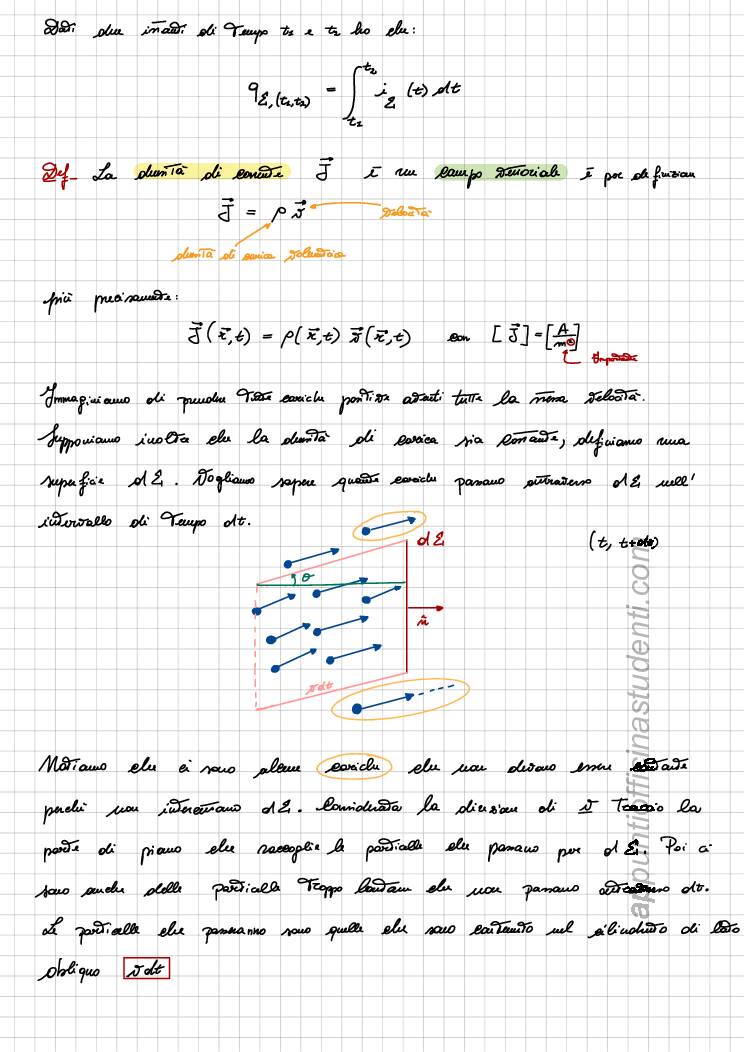 Dati due istanti di tempo t₁ e t₂ ho che:
q_{Σ,(t₁,t₂)} = ∫_{t₁}^{t₂} i_Σ (t) dt
Def- La densità di corrente J⃗ è un campo vettoriale è per definizione
J⃗ = ρ v⃗ velocità
densità di carica volumetrica
più precisamente:
J⃗(x⃗,t) = ρ(x⃗,t) v⃗(x⃗,t) con [J⃗] = [A/m²]
Importante
Immaginiamo di prendere tutte cariche positive aventi tutte la stessa velocità.
Supponiamo inoltre che la densità di carica sia costante, definiamo una
superficie dΣ. Vogliamo sapere quante cariche passano attraverso dΣ nell'
intervallo di tempo dt.
(t, t+dt)
dΣ
θ
n̂
vdt
Notiamo che ci sono alcune cariche che non devono essere contate
perché non intersecano dΣ. Considerata la direzione di v traccio la
parte di piano che raccoglie le particelle che passano per dΣ. Poi ci
sono anche delle particelle troppo lontane che non passano attraverso dt.
Le particelle che passeranno sono quelle che sono contenute nel cilindretto di lato
obliquo vdt
appuntiofficinastudenti.com